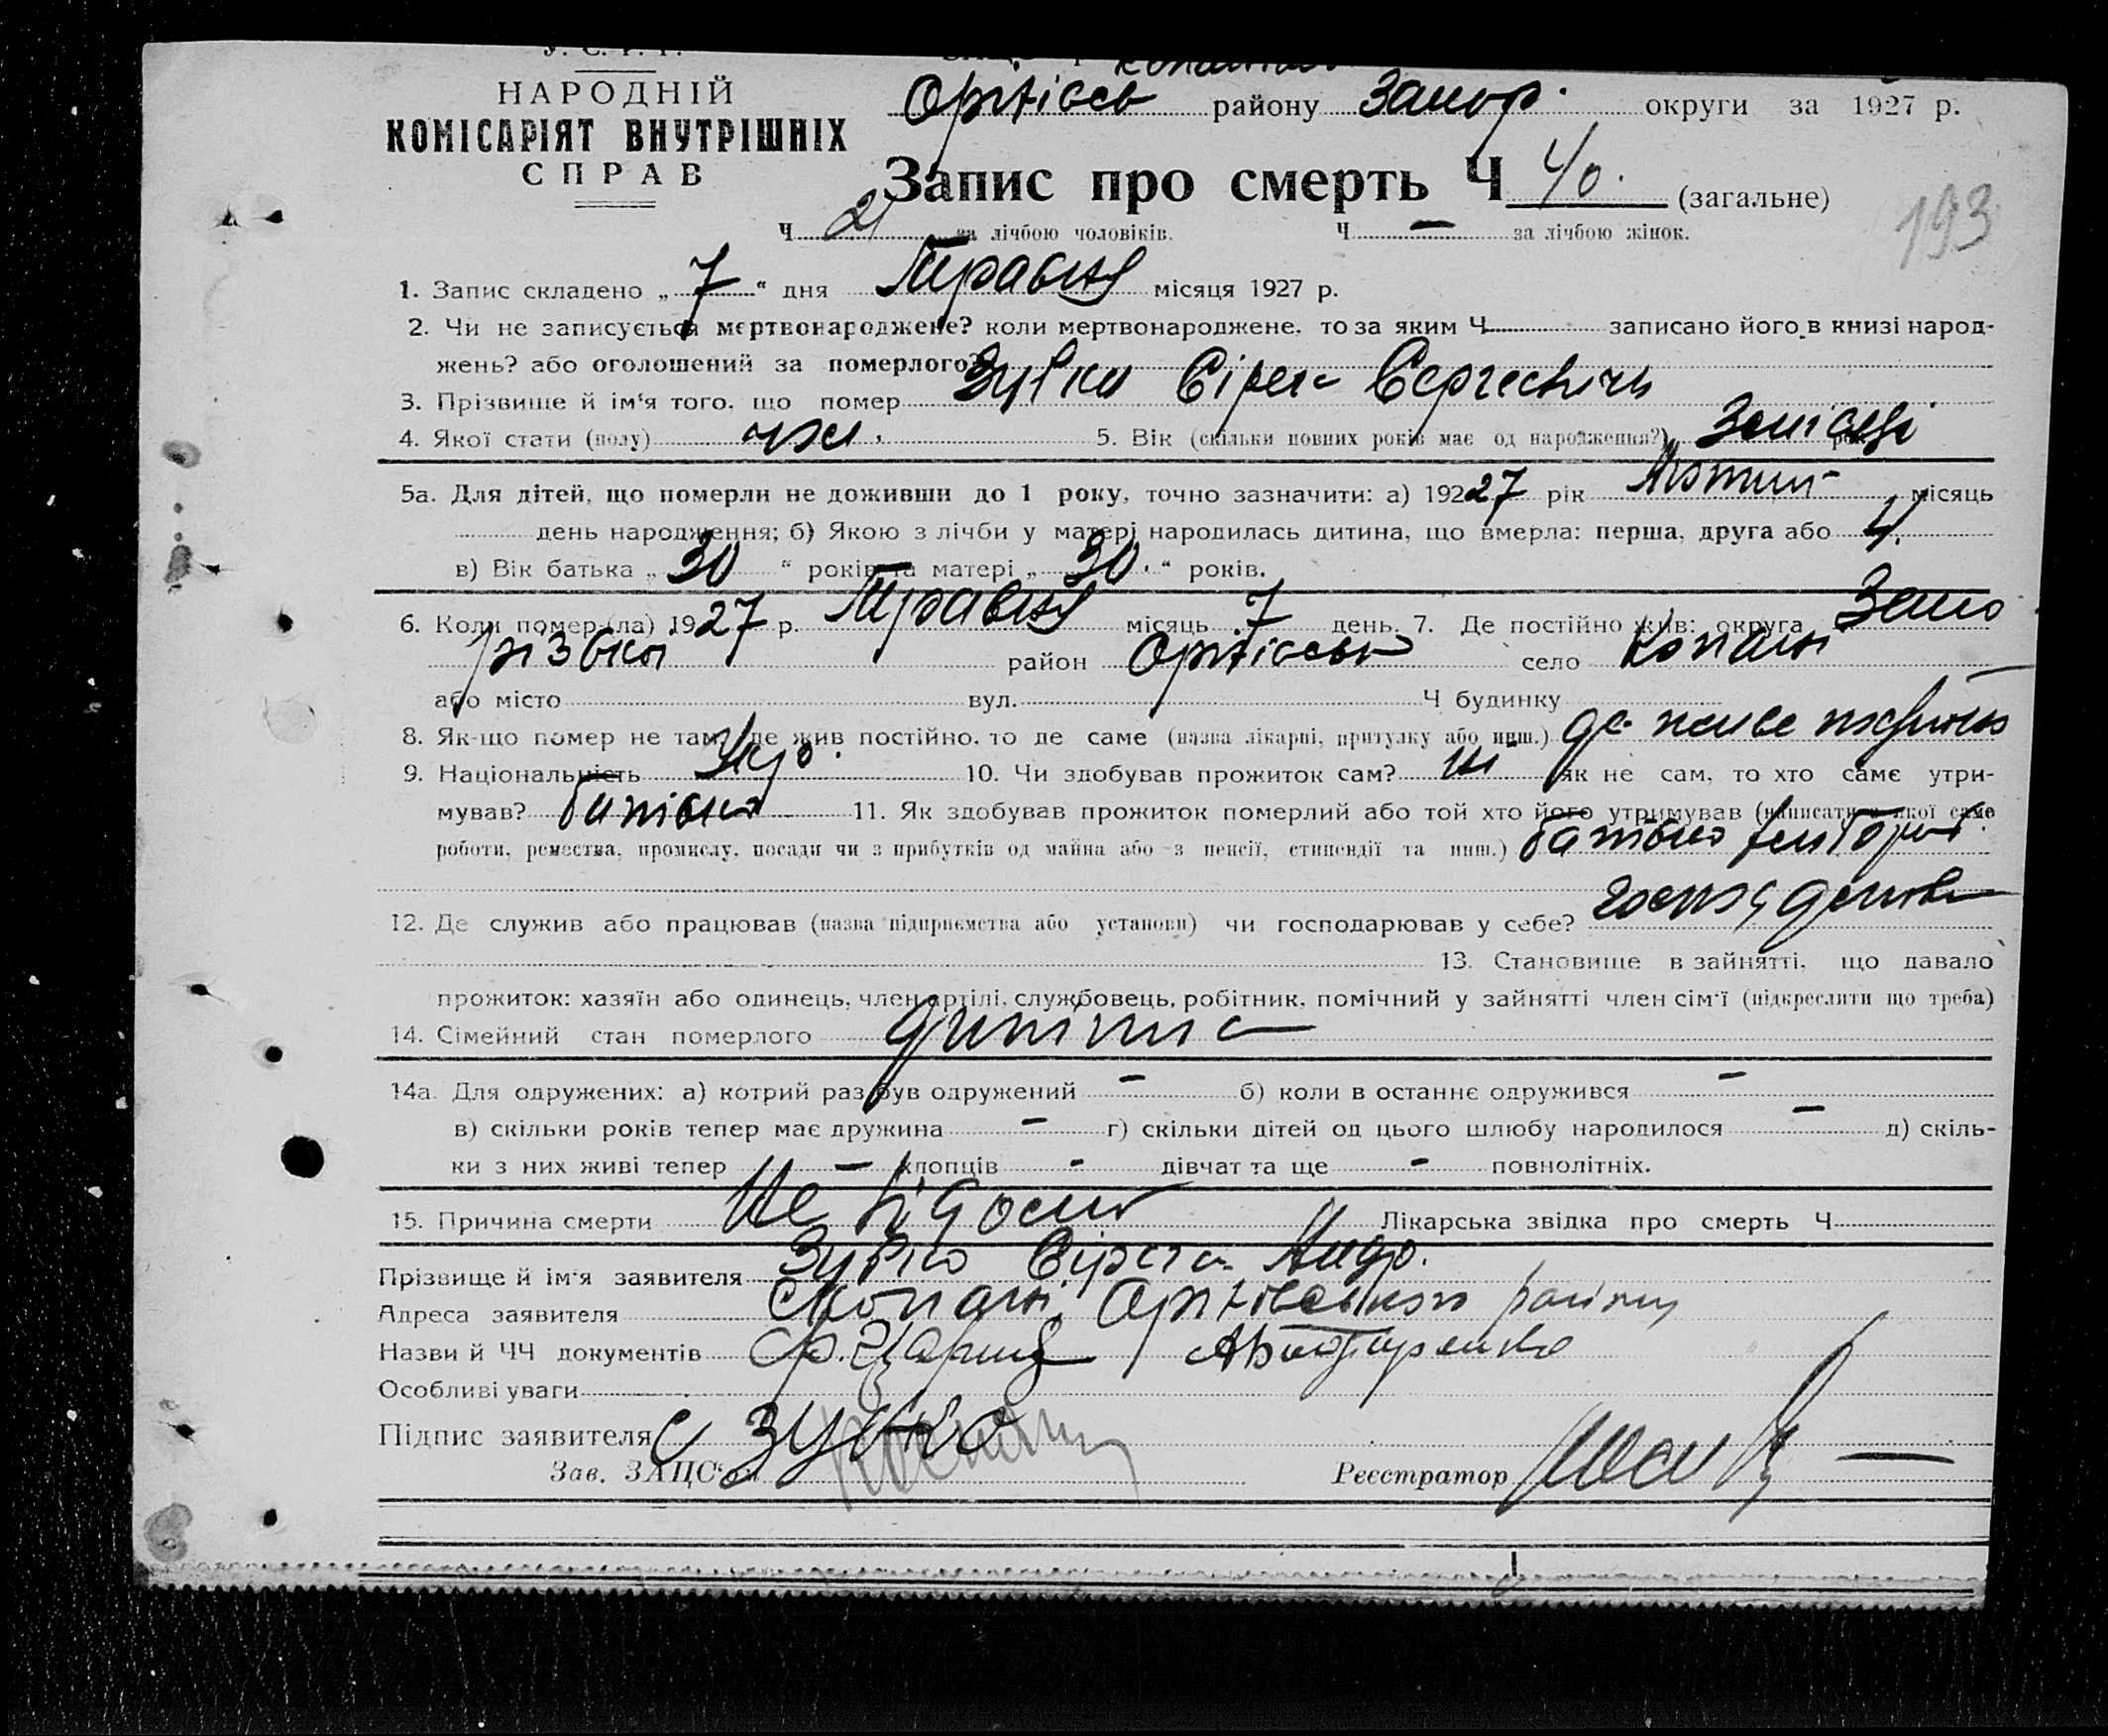 У. С. Р. Р.
НАРОДНІЙ
КОМІСАРІЯТ ВНУТРІШНІХ
СПРАВ
Оріхівськ району Запор. округи за 1927 р.
Запис про смерть Ч 40. (загальне)
193
Ч 21 за лічбою чоловіків. Ч — за лічбою жінок.
1. Запис складено „ 7 “ дня Травня місяця 1927 р.
2. Чи не записується мертвонароджене? коли мертвонароджене, то за яким Ч записано його в книзі народ-
жень? або оголошений за померлого?
3. Прізвище й ім'я того, що помер Зубко Сергеевичь
4. Якої стати (полу) чол. 5. Вік (скільки повних років має од народження?) 3 місяці
5а. Для дітей, що померли не доживши до 1 року, точно зазначити: а) 19227 рік Лютий місяць
день народження; б) Якою з лічби у матері народилась дитина, що вмерла: перша, друга або 4.
в) Вік батька „ 30 “ років та матері „ 30 “ років.
6. Коли помер (ла) 1927 р. Травня місяць 7 день. 7. Де постійно жив: округа Запо
різька район Оріхівськ село Копані
або місто вул. Ч будинку
8. Як-що помер не там, де жив постійно, то де саме (назва лікарні, притулку або инш.) де жив
9. Національність Укр. 10. Чи здобував прожиток сам? ні як не сам, то хто саме утри-
мував? батько 11. Як здобував прожиток померлий або той хто його утримував (написати з якої саме
роботи, ремества, промислу, посади чи з прибутків од майна або з пенсії, стипендії та инш.) батько хлібороб.
12. Де служив або працював (назва підприємства або установи) чи господарював у себе? госпо у
13. Становище в зайнятті, що давало
прожиток: хазяїн або одинець, член артілі, службовець, робітник, помічний у зайнятті член сім'ї (підкреслити що треба)
14. Сімейний стан померлого дитина
14а. Для одружених: а) котрий раз був одружений — б) коли в останнє одружився —
в) скільки років тепер має дружина — г) скільки дітей од цього шлюбу народилося — д) скіль-
ки з них живі тепер — хлопців - дівчат та ще - повнолітніх.
15. Причина смерти Не відомо Лікарська звідка про смерть Ч
Прізвище й ім'я заявителя Зубко Андр.
Адреса заявителя с Копані Оріхівського району
Назви й ЧЧ документів
Особливі уваги
Підпис заявителя С Зубко
Зав. ЗАЦС'ом Реєстратор